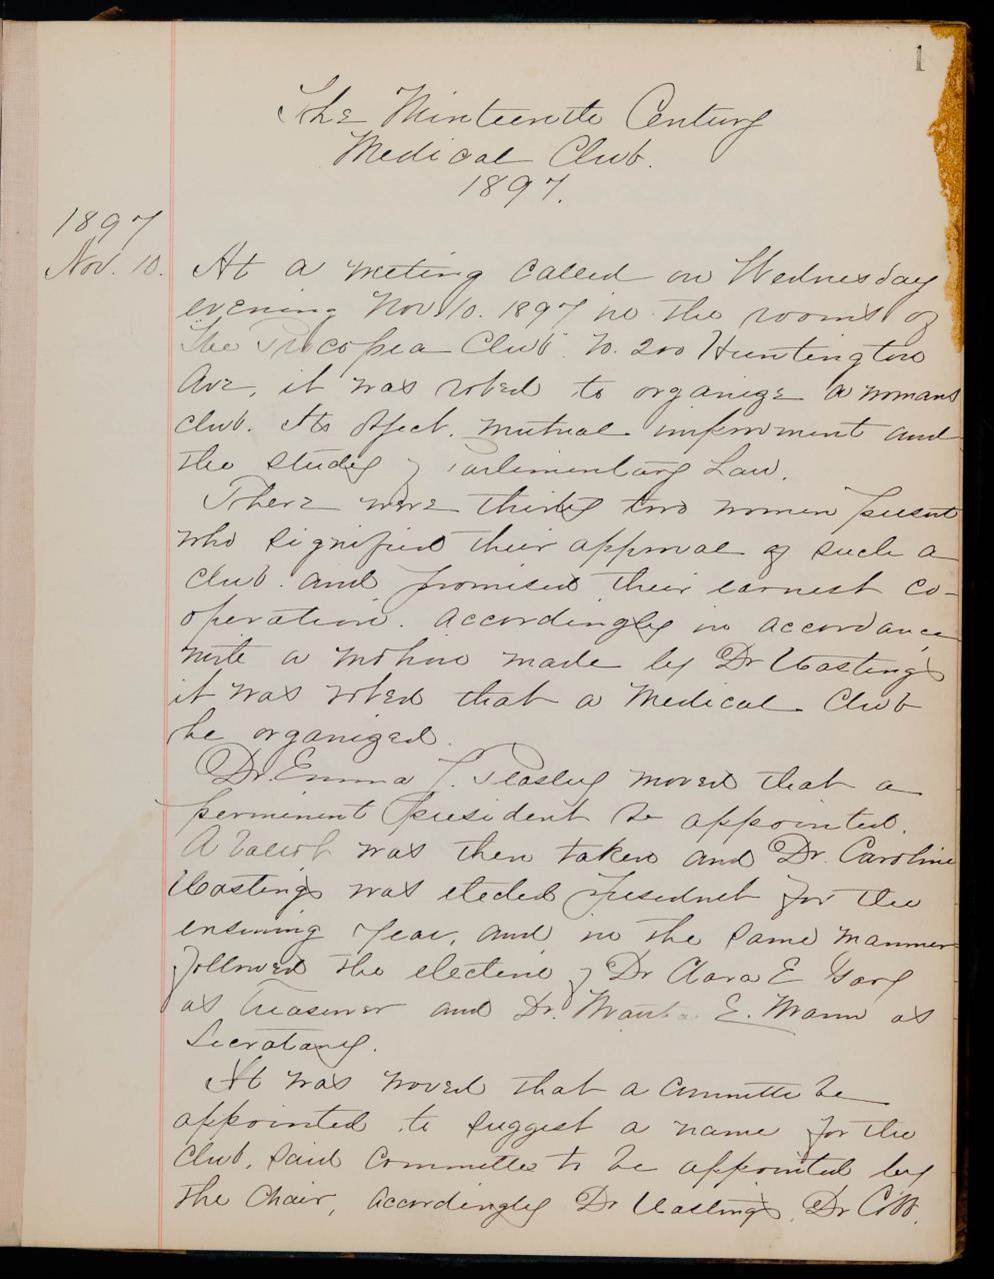 1
The Ninteenth Century
Medical Club.
1897.
1897
Nov. 10. At a meeting called on Wednesday
evening Nov 10. 1897 in the rooms of
The Procopeia Club. No. 200 Huntington
Ave, it was voted to organize a womans
club. Its object. mutual improvment and
the study of Parlimentary Law.
There were thirty two women present
who signified their approval of such a
club. and promised their earnest co-
operation. Accordingly in accordance
with a motion made by Dr Hastings
it was voted that a Medical Club
be organized.
Dr. Emma J. Peasley moved that a
perminent president be appointed.
A ballot was then taken and Dr. Caroline
Hastings was elected president for the
ensuing year, and in the same manner
followed the election of Dr Clara E Gary
as Treasurer and Dr. Martha E. Mann as
Secratary.
It was moved that a Committe be
appointed to suggest a name for the
Club, said Committee to be appointed by
the Chair, accordingly Dr Hastings, Dr